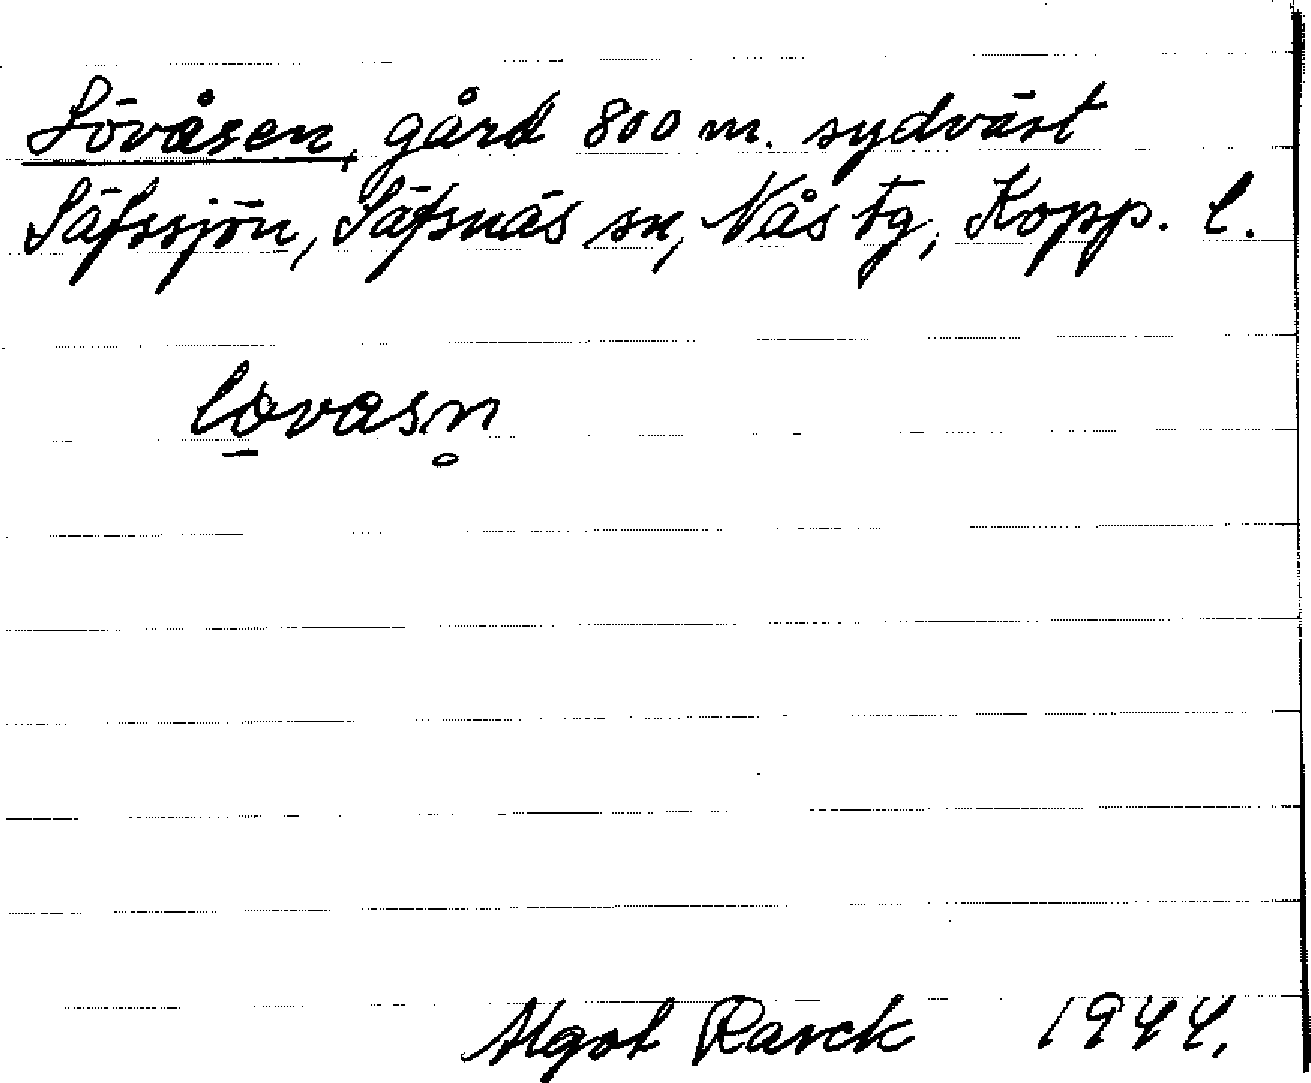 Lövåsen, gård 800 m. sydväst
Säfssjön, Säfsnäs sn, Nås tg, Kopp. l.
lo̠vasn̥
Algot Rarck 1944.